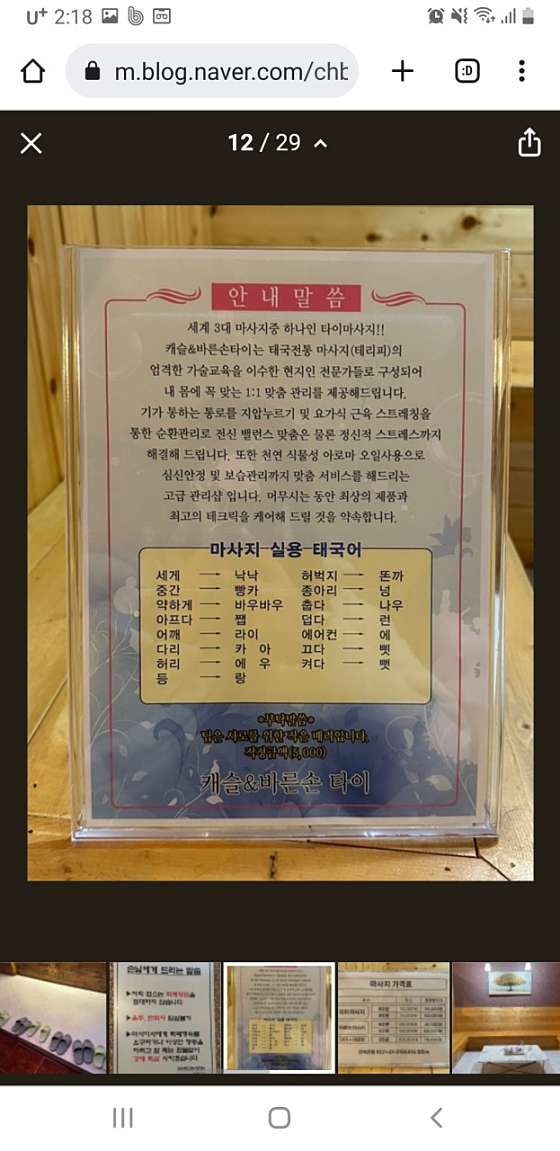 U+ 2:18
m.blog.naver.com/chb
:D
12 / 29
안내말씀
세계 3대 마사지중 하나인 타이마사지!!
캐슬&바른손타이는 태국전통 마사지(테리피)의
엄격한 가술교육을 이수한 현지인 전문가들로 구성되어
내 몸에 꼭 맞는 1:1 맞춤 관리를 제공해드립니다.
기가 통하는 통로를 지압누르기 및 요가식 근육 스트레칭을
통한 순환관리로 전신 밸런스 맞춤은 물론 정신적 스트레스까지
해결해 드립니다. 또한 천연 식물성 아로마 오일사용으로
심신안정 및 보습관리까지 맞춤 서비스를 해드리는
고급 관리샵 입니다. 머무시는 동안 최상의 제품과
최고의 테크릭을 케어해 드릴 것을 약속합니다.
마사지 실용 태국어
세게 → 낙낙 허벅지 → 똔까
중간 → 빵카 종아리 → 넝
약하게 → 바우바우 춥다 → 나우
아프다 → 쨉 덥다 → 런
어깨 → 라이 에어컨 → 에
다리 → 카 아 끄다 → 삣
허리 → 에 우 켜다 → 뺏
등 → 랑
※부탁말씀※
팁은 서로를 위한 작은 배려입니다.
적정금액(5,000)
캐슬&바른손 타이
손님에게 드리는 말씀
마사지 가격표